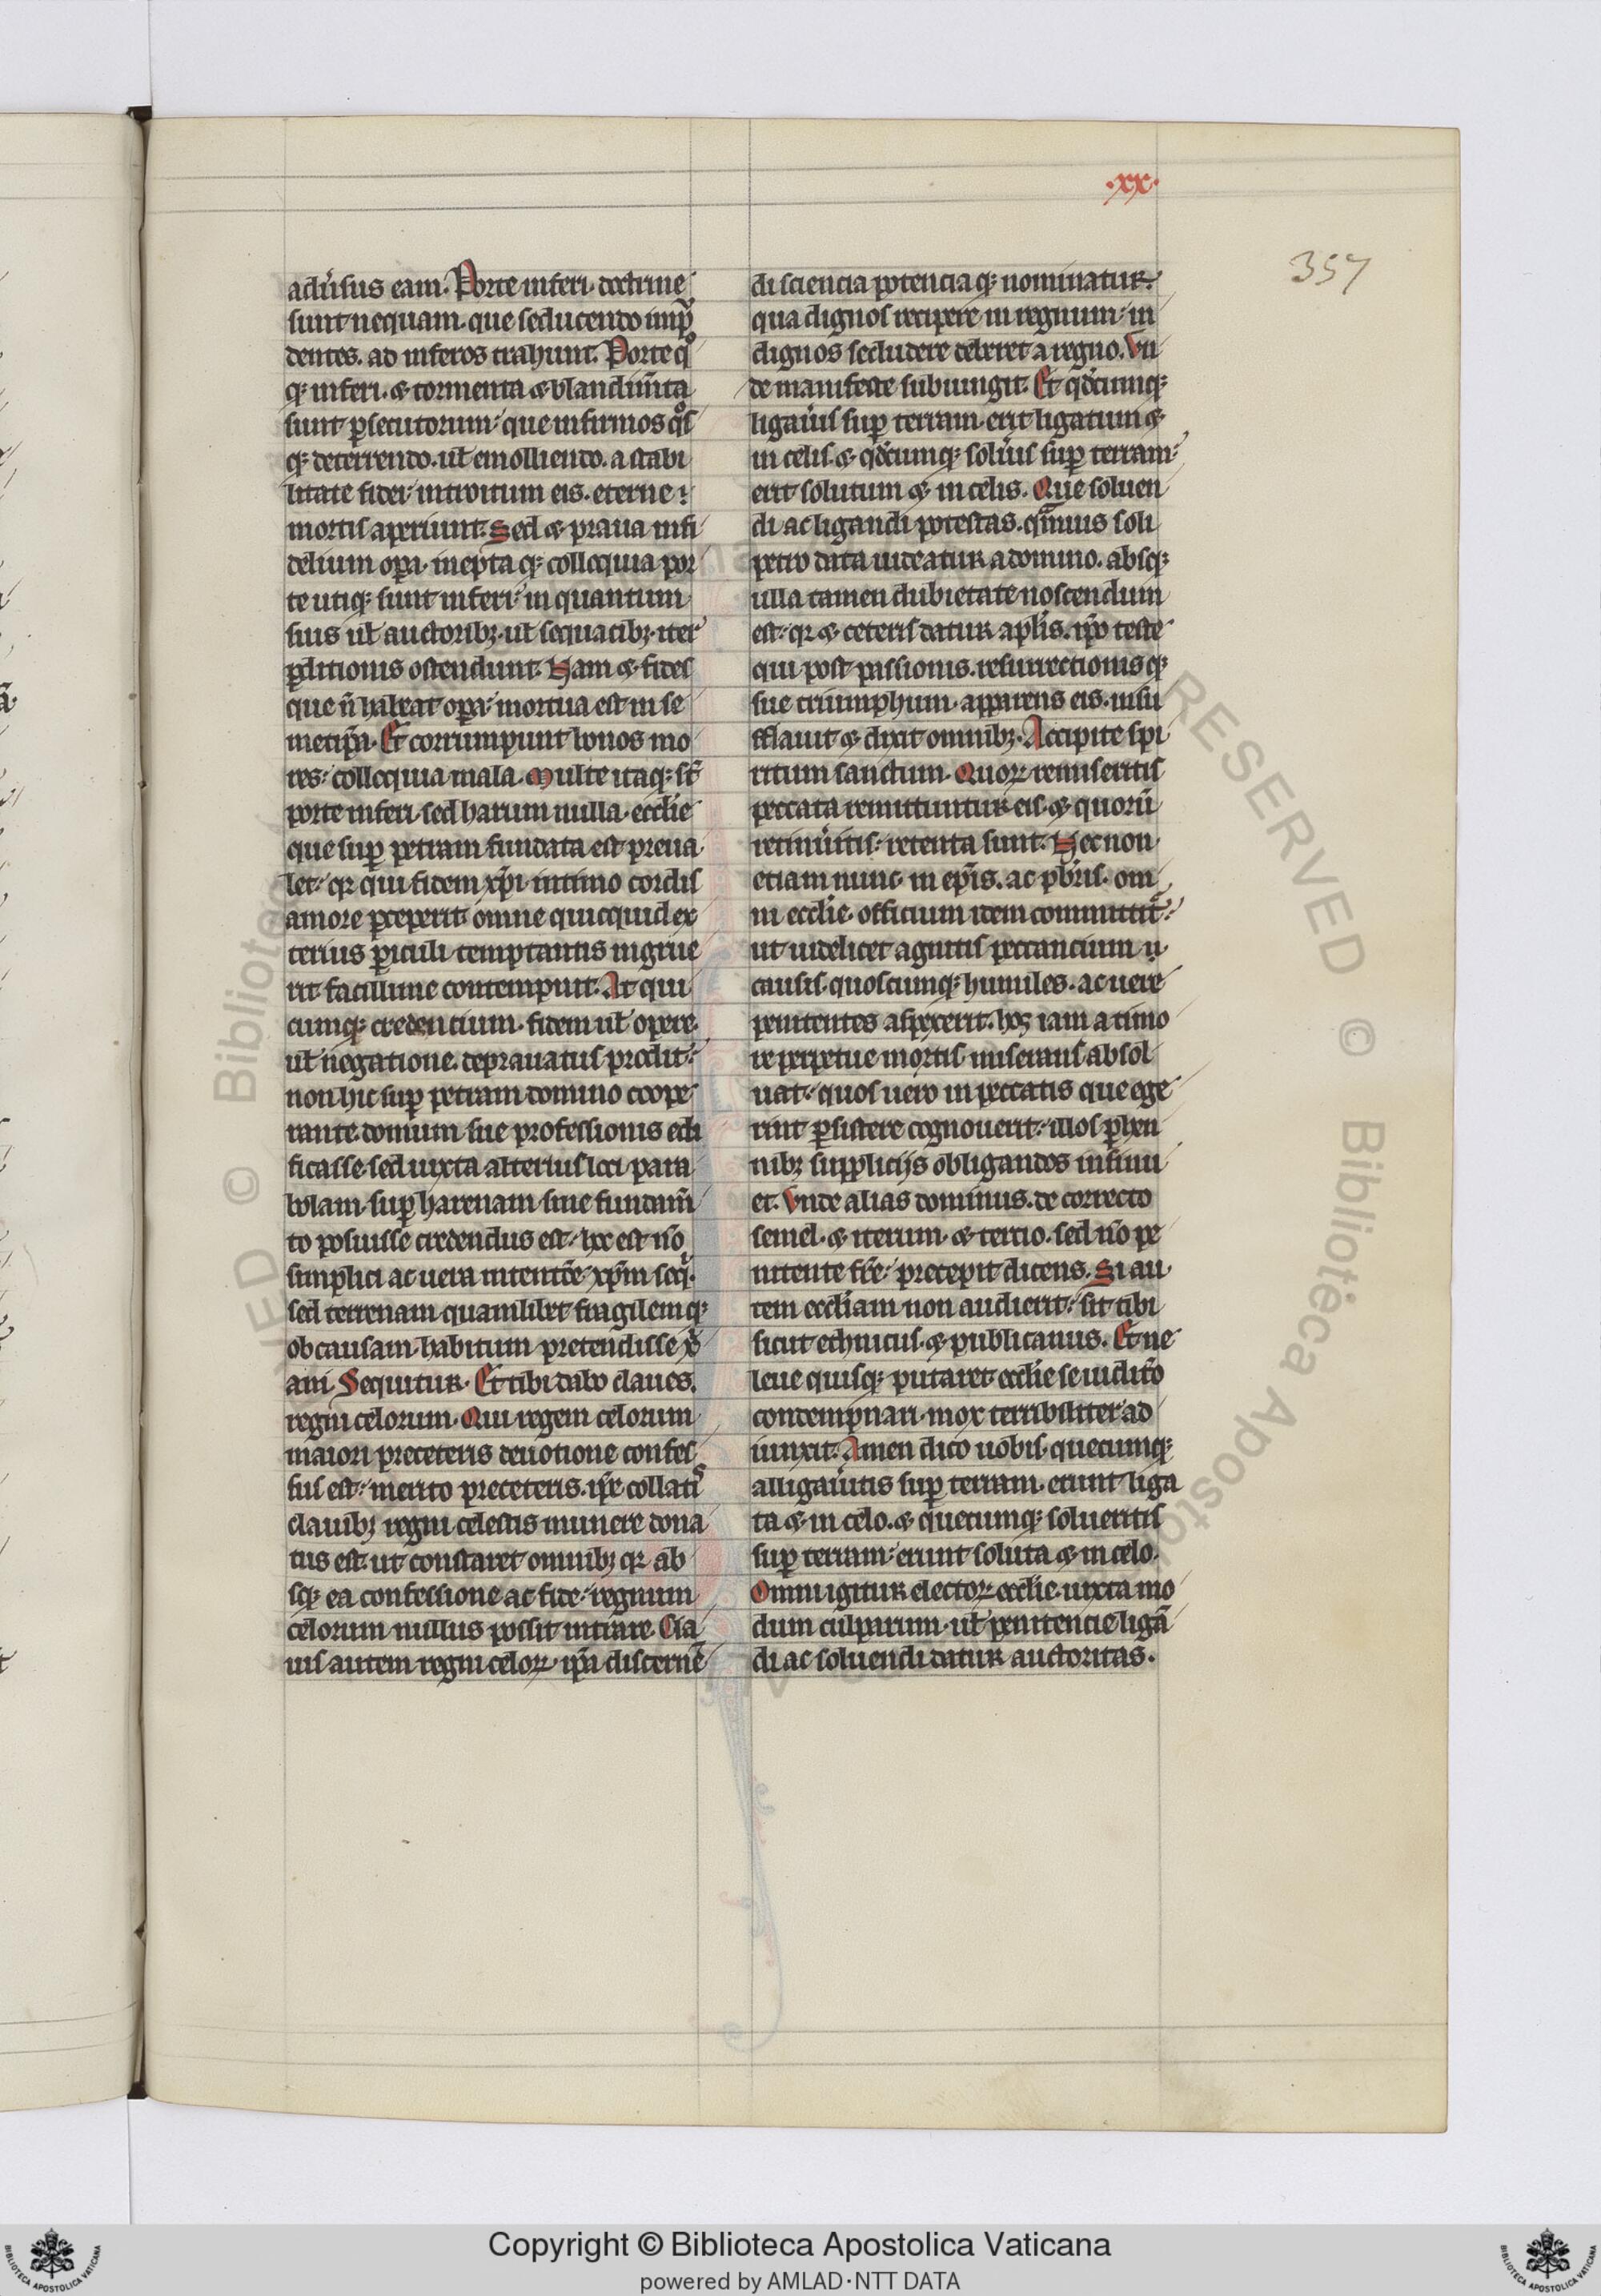 .xx.
357
adu̾sus eam. Porte inferi. doctrine
sunt nequam. que seducendo impͬ
dentes. ad inferos trahunt. Porte qͦ
qꝫ inferi. ⁊ tormenta ⁊ blandim̃ta
sunt ꝑsecutorum. que infirmos qͦs
qꝫ deterrendo. ul̃ emolliendo. a stabi
litate fidei. introitum eis. eterne
mortis aperiunt. Sed ⁊ praua infi
delium oꝑa. inepta qꝫ colloquia por
te utiqꝫ sunt inferi. in quantum
suis ul̃ auctoribꝫ. ul̃ sequacibꝫ. iter
ꝑditionis ostendunt. Nam ⁊ fides
que ñ habeat oꝑa. mortua est in se
metip̃a. Et corrumpunt bonos mo
res. colloquia mala. Multe itaqꝫ st̃
porte inferi. sed harum nulla. eccl̃ie
que suꝑ petram fundata est preua
let. qꝛ qui fidem xp̃i intimo cordis
amore ꝑceperit. omne quicquid ex
terius ꝑiculi temptantis ingrue
rit. facillime contempnit. At qui
cumqꝫ credentium. fidem ul̃ opere.
ul̃ negatione. deprauatus prodit.
non hic suꝑ petram domino coope
rante. domum sue professionis edi
ficasse. sed iuxta alterius loci para
bolam. suꝑ harenam. sine fundam̃
to posuisse credendus est. hoc est nõ
simplici ac uera intent̃oe xp̃m seqͥ.
sed terrenam quamlibet fragilem qꝫ
ob causam. habitum pretendisse xͣ
ani. Sequitur. Et tibi dabo claues.
regni celorum. Qui regem celorum
maiori pre ceteris deuotione confes
sus est. merito pre ceteris. ip̃e collatͥs
clauibꝫ regni celestis munere dona
tus est. ut constaret omnibꝫ qꝛ ab
sqꝫ ea confessione ac fide. regnum
celorum nullus possit intrare. Cla
uis autem regni celoꝝ. ip̃a discerne̾
di sciencia potencia qꝫ nominatur.
qua dignos recipere in regnum. in
dignos secludere deberet a regno. Vn
de manifeste subiungit. Et qd̾cumqꝫ
ligau̾is suꝑ terram. erit ligatum ⁊
in celis. ⁊ qd̾cumqꝫ solu̾is suꝑ terram.
erit solutum ⁊ in celis. Que soluen
di ac ligandi potestas. qͣmuis soli
petro data uideatur a domino. absqꝫ
ulla tamen dubietate noscendum
est. qꝛ ⁊ ceteris datur apl̃is. ip̃o teste
qui post passionis. resurrectionis qꝫ
sue triumphum. apparens eis. insu
fflauit ⁊ dixit omnibꝫ. Accipite spi
ritum sanctum. Quoꝝ remiseritis
peccata remittuntur eis. ⁊ quorũ
retinu̾itis. retenta sunt. Nec non
etiam nunc. in ep̃is. ac pb̃ris. om
ni eccl̃ie. officium idem committitͬ.
ut uidelicet agnitis peccancium
causis. quoscumqꝫ humiles. ac uere
penitentes aspexerit. hos iam a timo
re perpetue mortis miserans absol
uat. quos uero in peccatis que ege
rint ꝑsistere cognouerit. illos ꝑhen
nibꝫ suppliciis obligandos insinu
et. Vnde alias dominus. de correcto
semel. ⁊ iterum. ⁊ tercio. sed nõ pe
nitente fr̃e. precepit dicens. Si au
tem eccl̃iam non audierit. sit tibi
sicut ethnicus. ⁊ publicanus. Et ne
leue quisqꝫ putaret eccl̃ie se iudic̃o
contempnari. mox terribiliter ad
iunxit. Amen dico uobis. quecumqꝫ
alligau̾itis suꝑ terram. erunt liga
ta ⁊ in celo. ⁊ quecumqꝫ solueritis
suꝑ terram. erunt soluta ⁊ in celo.
Omni igitur electoꝝ eccl̃ie. iuxta mo
dum culparum. ul̃ penitencie ligã
di ac soluendi datur auctoritas.
Copyright © Biblioteca Apostolica Vaticana
powered by AMLAD·NTT DATA